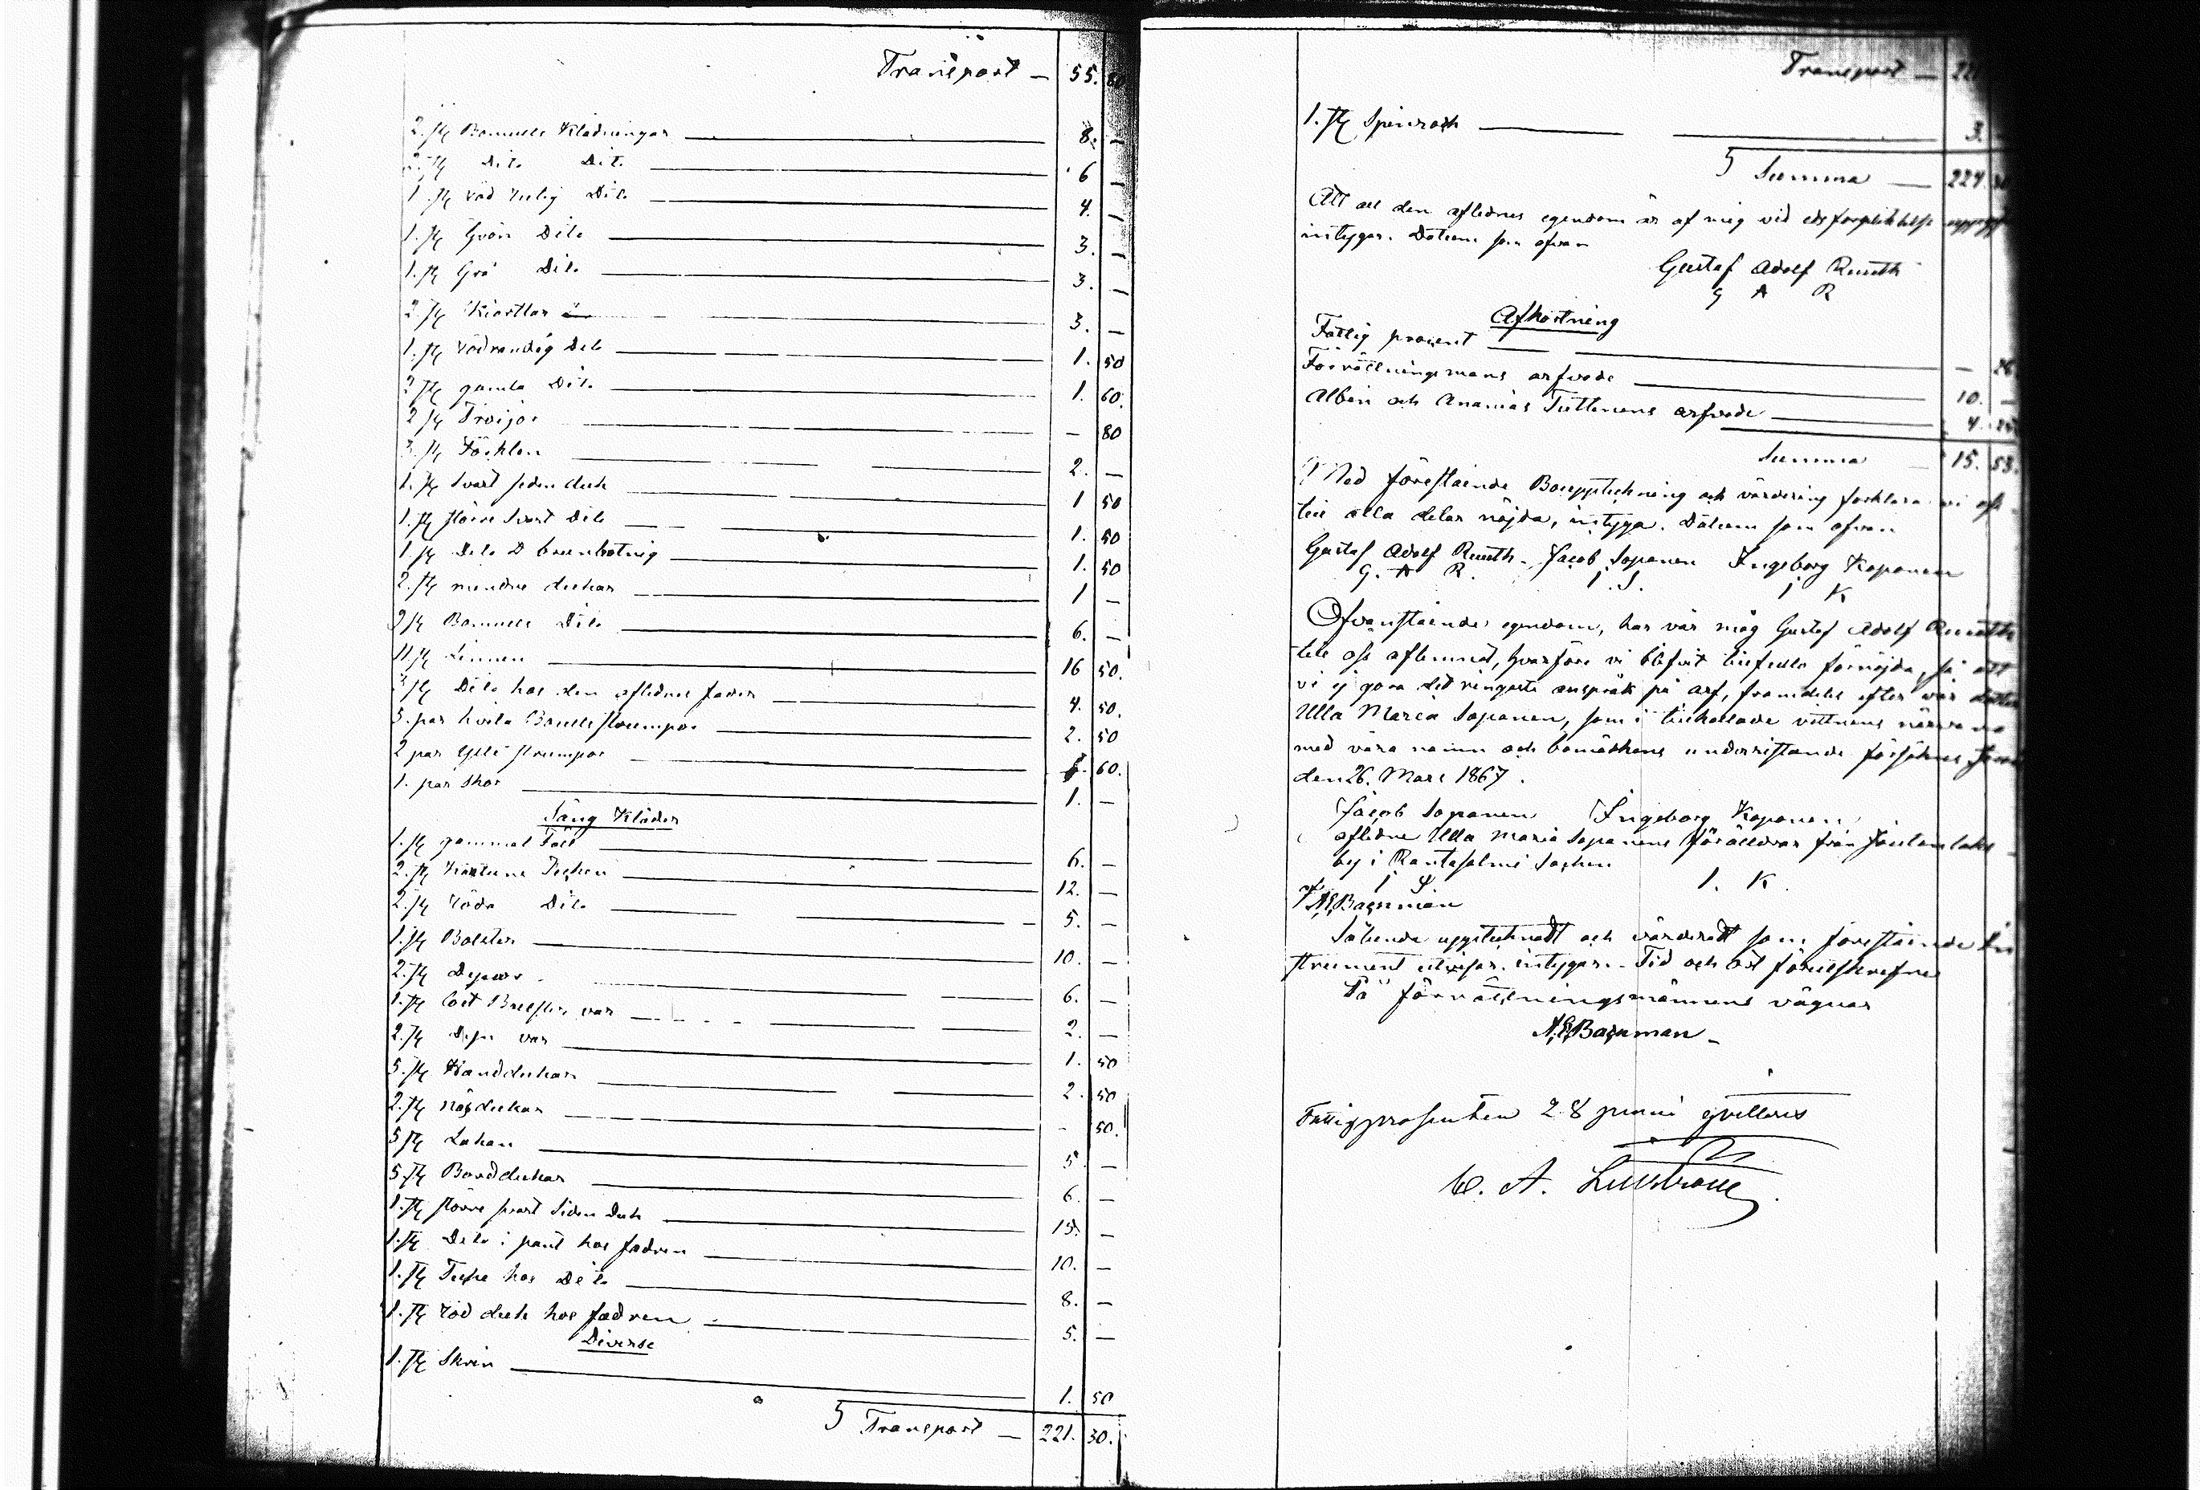 Transport — 55.
2. st Bomulls Klädningar — 8. —
2. st Dito Dito — 6 —
1. st röd Dito — 4. —
1. st Grön Dito — 3. —
1. st Grå Dito — 3. —
2. st Kiortlar — 3. —
1. st rödrandig Dito — 1. 50
2 st gamla Dito — 1. 60.
2 st Tröijor — — 80
3. st Förklen — 2. —
1. st Svart siden duk — 1 50
1. st större Svart Dito — 1. 50
1. st Dito brunbotnig — 1. 50
2. st mindre dukar — 1 —
9 st Bomulls Dito — 6. —
11 st Linnen — 16 50.
3 st Dito hos den aflidnes fader — 4. 50.
3. par hvita Bomulls strumpor — 2. 50
2 par Ylle strumpor — 60.
1. par Skor — 1. —
Säng Kläder
1. st gammal Fäll — 6. —
2. st Täcken — 12. —
2. st röda Dito — 5. —
1. st Bolster — 10. —
2. st — 6. —
1. st var — 2. —
2. st var — 1. 50
5. st Handdukar — 2. 50
2. st näsdukar — - 50.
5 st Lakan — 5 —
5. st Borddukar — 6. —
1. st större svart Siden duk — 15. —
1. st Dito i pant hos fadren — 10. —
1. st hos Dito — 8. —
1. st röd duk hos fadren — 5. —
Diverse
1. st Skrin — 1. 50
Transport — 221. 30.
Transport — 221
1. st Spinrock — 3.
Summa — 224. 30
Att all den aflidnes egendom är af mig vid edsförpliktelse
intygar. Datum som ofvan
Gustaf Adolf Ruuth
G A R
Afkortning
Fattig procent — — 26
Förrättningsmans arfvode — 10. —
Albin och Ananias Tuttinens arfvode — 4.
Summa — 15. 53.
Med förestående Bouppteckning och värdering förklara vi oss
till alla delar nöjda, intyga. Datum som ofvan
Gustaf Adolf Ruuth. Jacob Sapanen Ingeborg Kaponen
G. A R. I. S. I K
Ofvanstående egendom, har vår måg Gustaf Adolf Ruuth
till oss aflemnat, hvarföre vi blifvit tillfullo förnöjda, så att
vi ej göra det ringaste anspråk på arf, framdeles efter vår dotter
Ulla Maria Sapanen, som i tillkallade vittnens närvaro
med våra namn och bomärkens underristande försäkras
den 26. Mars 1867.
Jacob Sapanen Ingeborg Kaponen
aflidne Ulla Maria Sapanens föräldrar från
by i Rantasalmi Socken
I S I. K.
Sålunda upptecknadt och värderadt som förestående In
strument utvisar. intygar. Tid och Ort förutskrefne
På förrättningsmännens vägnar
Fattigprosenten 28 juni qvitteras
C. A.